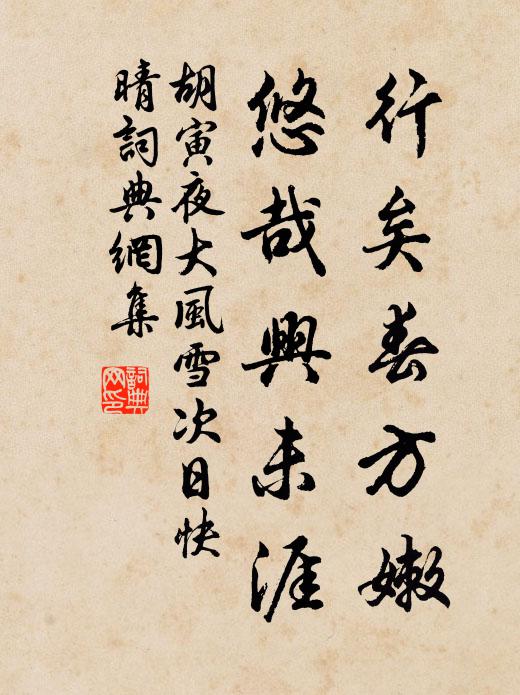 行矣春方嫩
悠哉興未涯
胡寅夜大風雪次日快
晴詞典網集
詞典网印